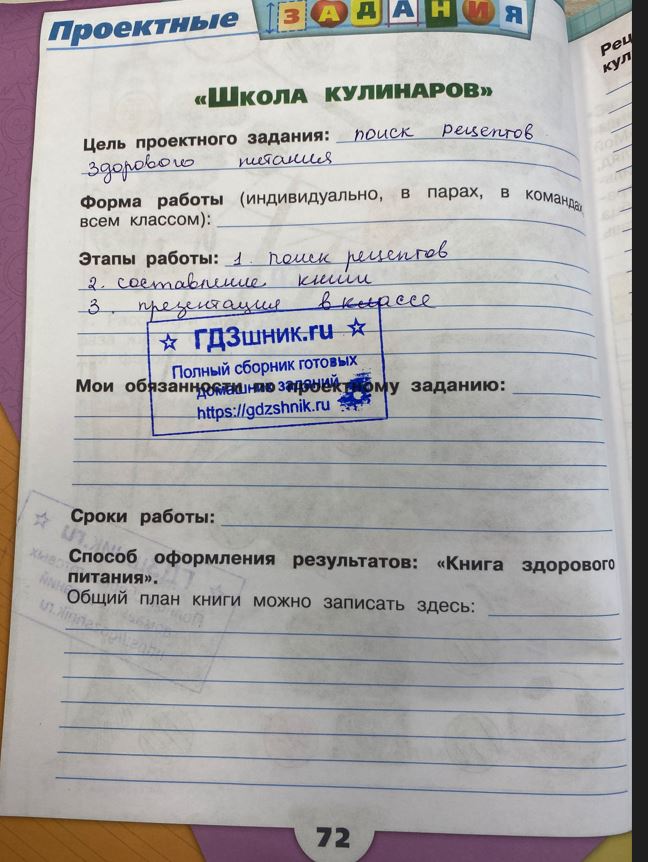 Проектные ЗАДАНИЯ
«ШКОЛА КУЛИНАРОВ»
Цель проектного задания: поиск рецептов
здорового питания
Форма работы (индивидуально, в парах, в командах,
всем классом):
Этапы работы: 1. поиск рецептов
2. составление книги
3. презентация в классе
☆ ГДЗшник.ru ☆
Полный сборник готовых
домашних заданий
https://gdzshnik.ru
Мои обязанности по проектному заданию:
Сроки работы:
Способ оформления результатов: «Книга здорового
питания».
Общий план книги можно записать здесь:
72
Рец
кул